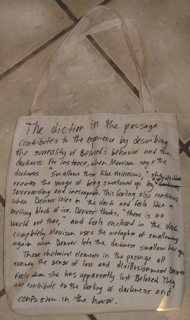 The diction in the passage
contributes to the experience by describing
the surreality of Beloved's behavior and the
darkness. For instance, when Morrison says the
darkness "swallows them like minnows,"
creates the image of being swallowed up by
surrounding and inescapable. This feeling also continues
when Denver cries in the dark and feels like a
melting block of ice. Denver thinks, "there is no
world out there," and feels enclosed in the black
completely. Morrison uses the metaphor of swallowing
again when Denver lets the darkness swallow her
These rhetorical elements in the passage all
convey the sense of loss and disillusionment Denver
feels when she has apparently lost Beloved. They
all contribute to the feeling of darkness and
confusion in the house.